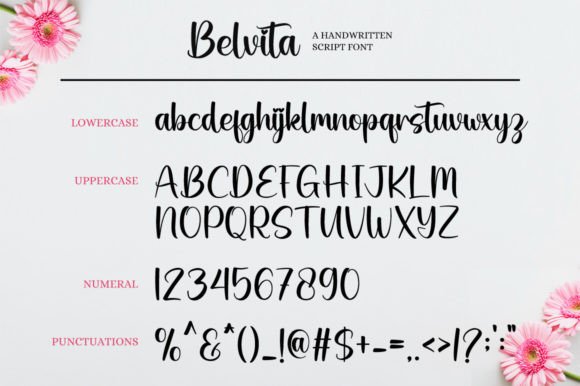 Belvita
A HANDWRITTEN
SCRIPT FONT
LOWERCASE
abcdefghijklmnopqrstuvwxyz
UPPERCASE
ABCDEFGHIJKLM
NOPQRSTUVWXYZ
NUMERAL
1234567890
PUNCTUATIONS
%^&*()_!@#$+-=,.<>|?;:'"